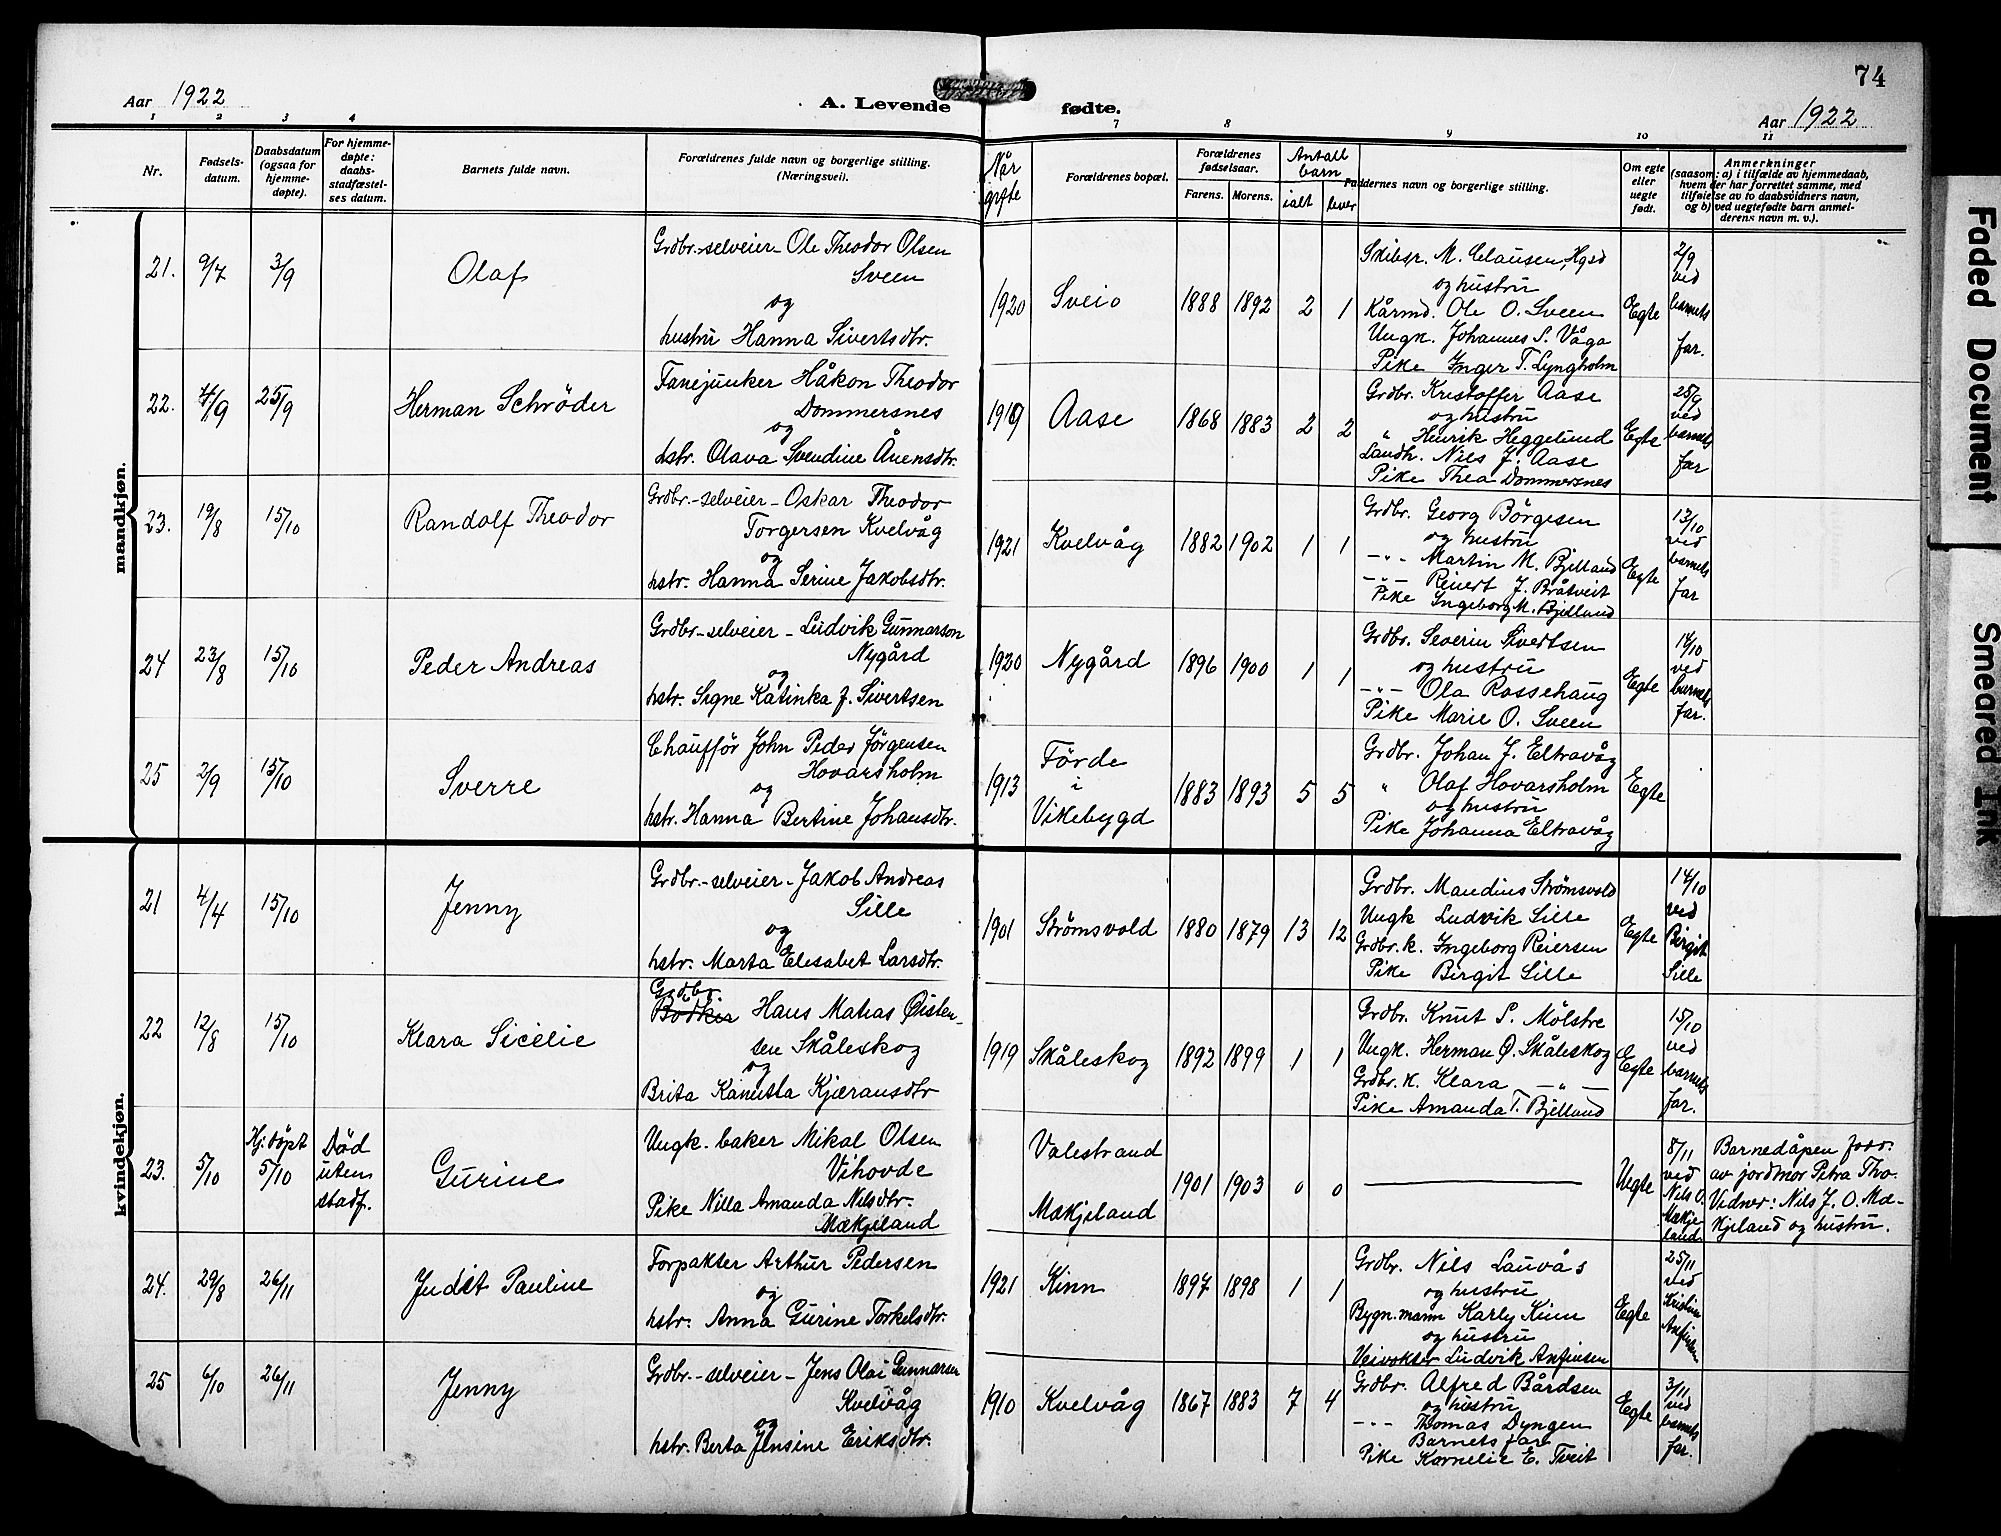 74
Aar 1922
A. Levende fødte.
Aar 1922
1 2 3 4 7 8 9 10 11
Nr.
Fødsels-
datum.
Daabsdatum
(ogsaa for
hjemme-
døpte).
For hjemme-
døpte:
daabs-
stadfæstel-
ses datum.
Barnets fulde navn.
Forældrenes fulde navn og borgerlige stilling.
(Næringsvei).
Når
gifte
Forældrenes bopæl.
Forældrenes
fødselsaar.
Farens. Morens.
Antall
barn
ialt lever
Faddernes navn og borgerlige stilling.
Om egte
eller
uegte
født.
Anmerkninger
(saasom: a) i tilfælde av hjemmedaab,
hvem der har forrettet samme, med
tilføielse av to daabsvidners navn,
og b) ved uegtefødte barn anmel-
derens navn m. v.).
mandkjøn.
21. 9/7 3/9 Olaf
Grdbr.-selveier- Ole Theodor Olsen
Sveen
og
hustru Hanna Sivertsdtr.
1920 Sveio 1888 1892 2 1
Skibsr. M. Clausen, Hgsd
og hustru
Kårmd. Ole O. Sveen
Ungk. Johannes S. Våga
Pike Inger T. Lyngholm
Egte
2/9
ved
barnets
far.
22. 4/9 25/9 Herman Schrøder
Fanejunker Håkon Theodor
Dommersnes
og
hstr. Olava Svendine Åuensdtr.
1919 Aase 1868 1883 2 2
Grdbr. Kristoffer Aase
og hustru
" Henrik Heggelund
Landh. Nils J. Aase
Pike Thea Dommersnes
Egte
25/9
ved
barnets
far
23. 19/8 15/10 Randolf Theodor
Grdbr.-selveier- Oskar Theodor
Torgersen Kvelvåg
og
hstr. Hanna Serine Jakobsdtr.
1921 Kvelvåg 1882 1902 1 1
Grdbr. Georg Börgesen
og hustru
-"- Martin M. Bjelland
-"- Reiert J. Bråtveit
Pike Ingeborg M. Bjelland
Egte
13/10
ved
barnets
far
24 23/8 15/10 Peder Andreas
Grdbr-selveier- Ludvik Gunnarson
Nygård
og
hstr. Signe Katinka J. Sivertsen
1920 Nygård 1896 1900 1 1
Grdbr. Severin Sivertsen
og hustru
-"- Ola Rossehaug
Pike Marie O. Sveen
Egte
14/10
ved
barnets
far.
25 2/9 15/10 Sverre
Chauffør John Peder Jørgensen
Hovarsholm
og
hstr. Hanna Bertine Johansdtr.
1913 Förde
i
Vikebygd
1883 1893 5 5
Grdbr. Johan J. Eltravåg
" Olaf Hovarsholm
og hustru
Pike Johanna Eltravåg
Egte
kvindekjøn.
21 4/4 15/10 Jenny
Grdbr.-selveier- Jakob Andreas
Lille
og
hstr. Marta Elesabet Larsdtr.
1901 Strømsvold 1880 1879 13 12
Grdbr. Mandius Strømsvold
Ungk Ludvik Lille
Grdbr.k. Ingeborg Reiersen
Pike Birgit Lille
Egte
14/10
ved
Birgit
Lille
22 12/8 15/10 Klara Sicelie
Grdbr
Bödker Hans Matias Øisten-
sen Skåleskog
og
Brita Kanutta Kjæransdtr
1919 Skåleskog 1892 1899 1 1
Grdbr. Knut S. Mölstre
Ungk. Herman Ø. Skåleskog
Grdbr.k. Klara -"-
Pike Amanda T. Bjelland
Egte
15/10
ved
barnets
far.
23. 5/10
Hj:döpt
5/10
Död
uten
stadf.
Gurine
Ungk. baker Mikal Olsen
Vihovde
Pike Nilla Amanda Nilsdtr.
Mækjeland
Valestrand
Mækjeland
1901 1903 0 0
Uegte
8/11
ved
Nils O.
Mækje
land
Barnedåpen forr.
av jordmor Petra Tho.
Vidner: Nils J. O. Mæ-
kjeland og hustru.
24. 29/8 26/11 Judit Pauline
Forpakter Arthur Pedersen
og
hstr. Anna Gurine Torkelsdtr.
1921 Kinn 1897 1898 1 1
Grdbr. Nils Lauvås
og hustru
Bygn.mann Karly Kinn
og hustru
Veivokter Ludvik Anfinsen
Egte
25/11
ved
Kristine
Anfinsen
25 6/10 26/11 Jenny
Grdbr.-selveier- Jens Olai Gunnarsen
Kvelvåg
og
hstr. Berta Jensine Eriksdtr.
1910 Kvelvåg 1867 1883 7 4
Grdbr. Alfred Bårdsen
og hustru
-"- Thomas Dyngen
Barnets far
Pike Kornelie E. Tveit
Egte
3/11
ved
barnets
far.
Faded Document
Smeared Ink